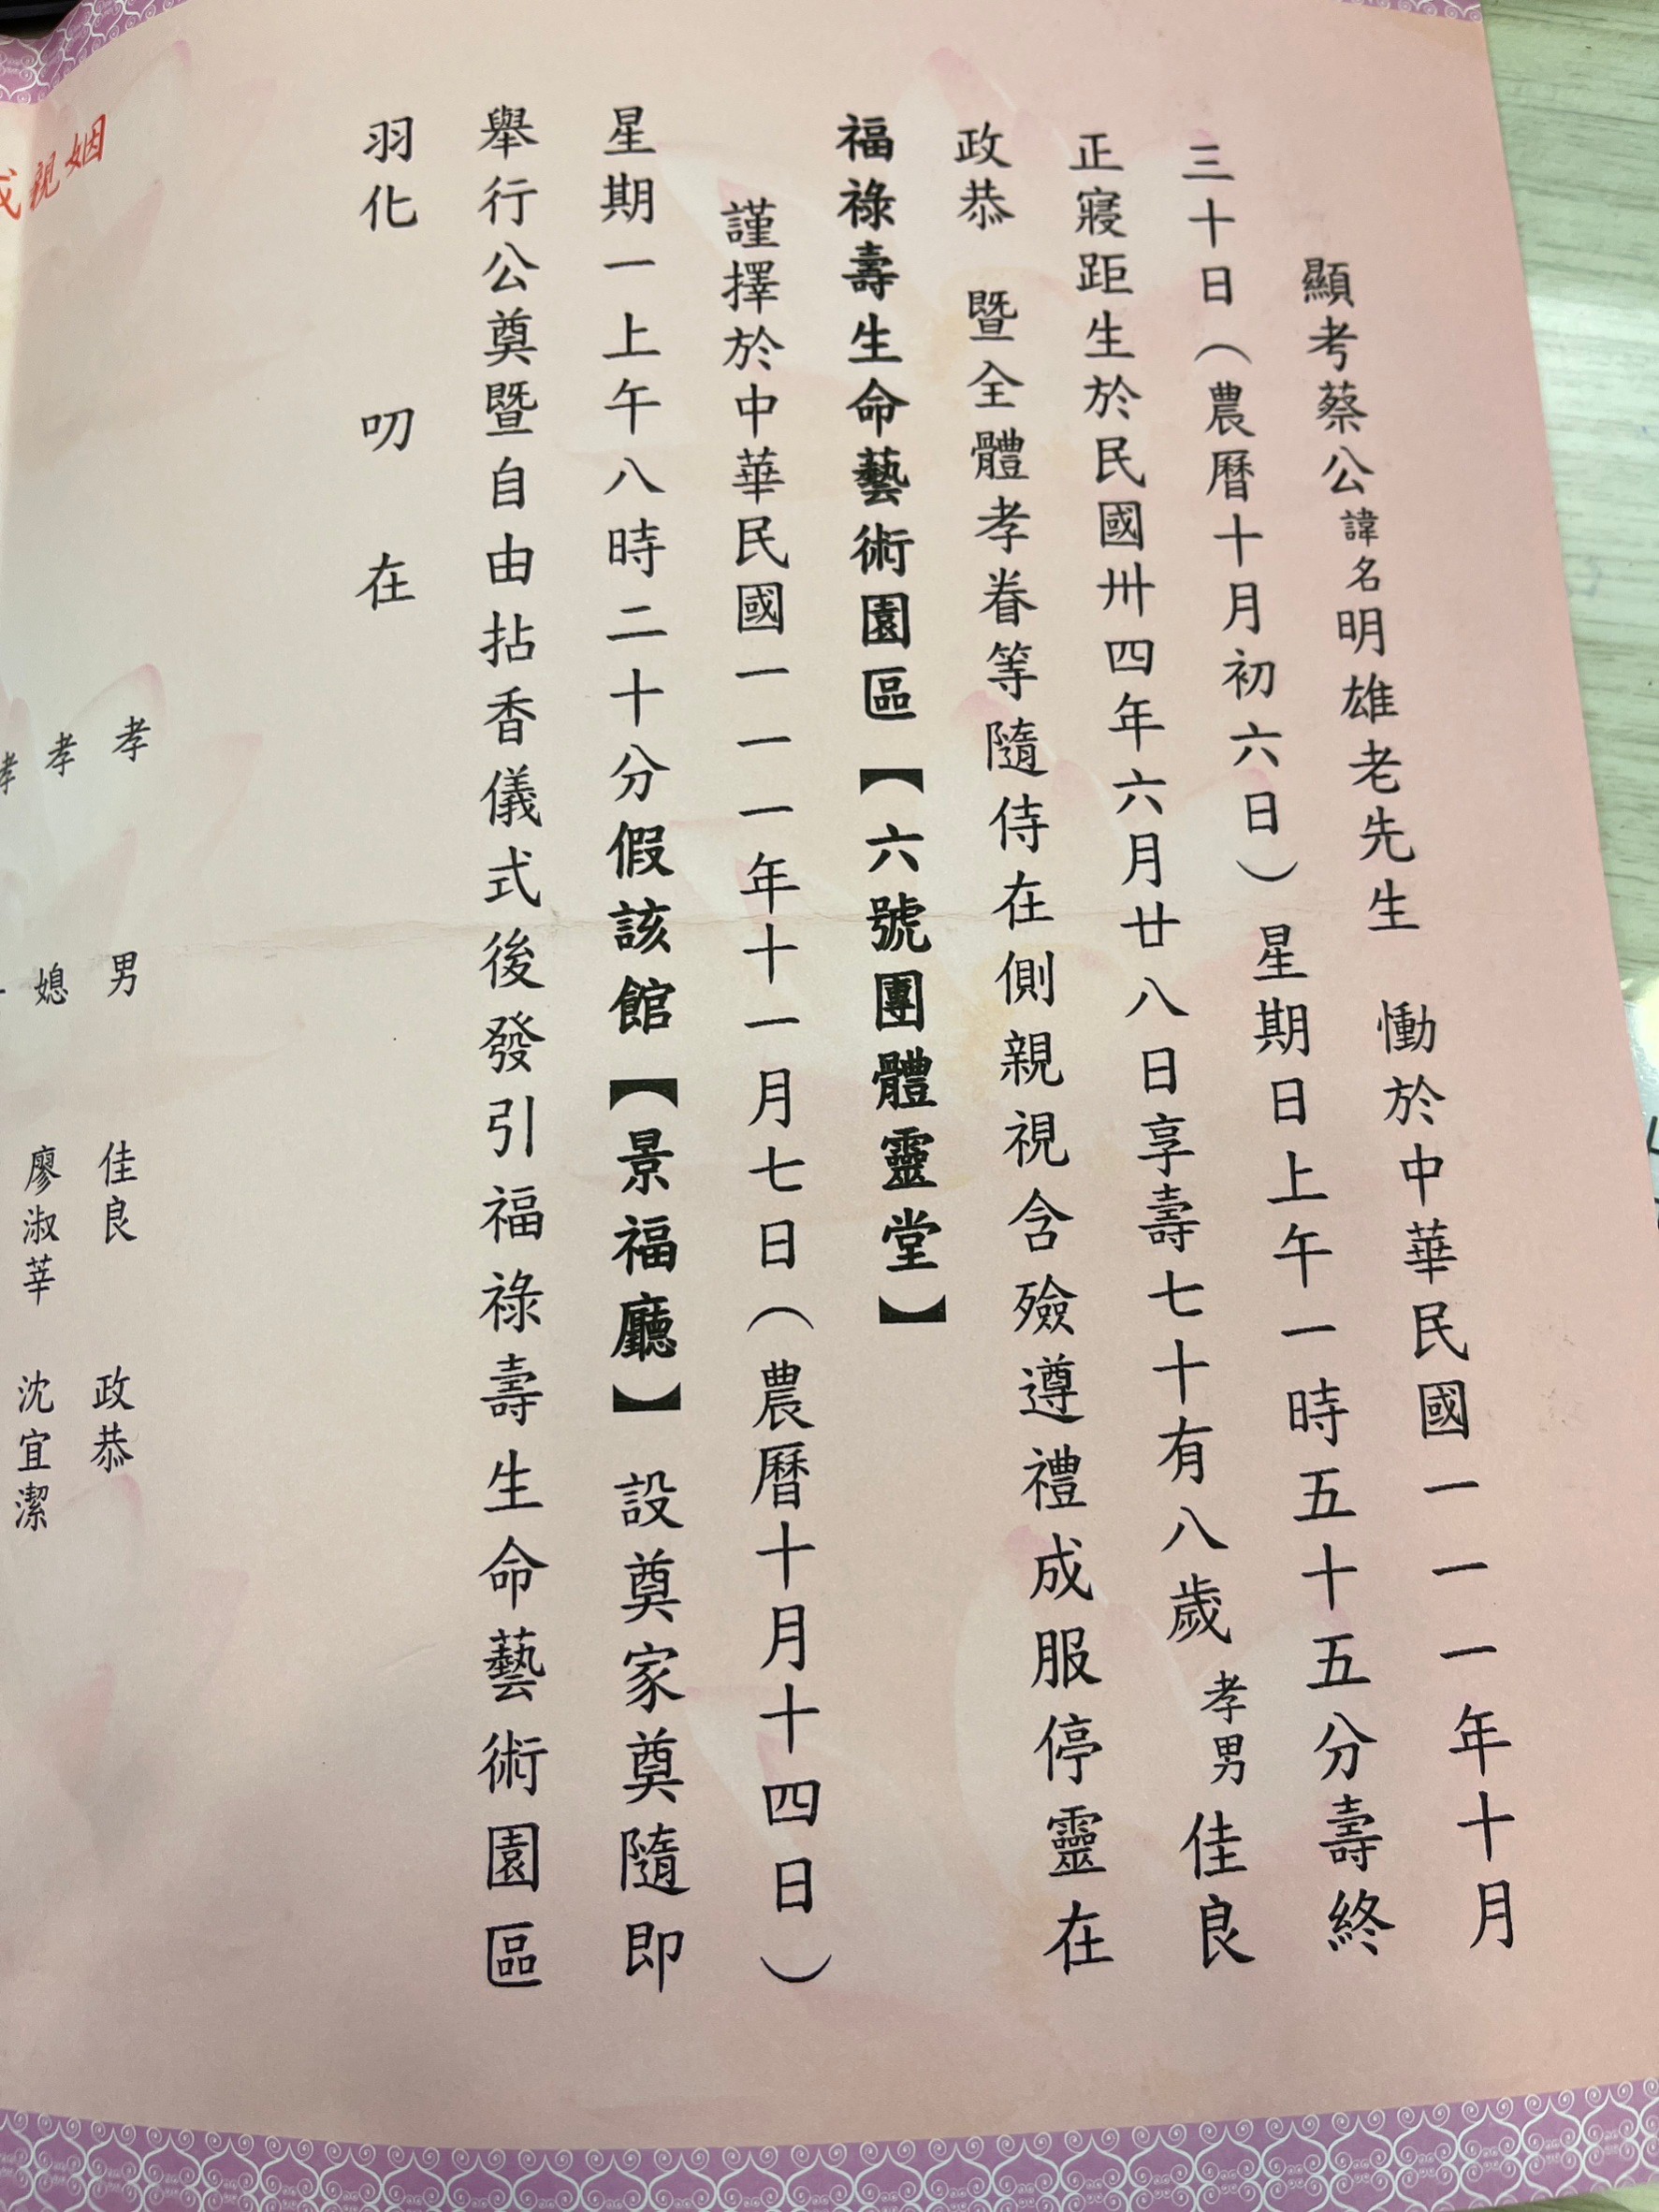 顯考蔡公諱名明雄老先生 慟於中華民國一一一年十月
三十日（農曆十月初六日）星期日上午一時五十五分壽終
正寢距生於民國卅四年六月廿八日享壽七十有八歲孝男佳良
政恭 暨全體孝眷等隨侍在側親視含殮遵禮成服停靈在
福祿壽生命藝術園區【六號團體靈堂】
謹擇於中華民國一一一年十一月七日（農曆十月十四日）
星期一上午八時二十分假該館【景福廳】設奠家奠隨即
舉行公奠暨自由拈香儀式後發引福祿壽生命藝術園區
羽化 叨在
姻親戚
孝男 佳良 政恭
孝媳 廖淑莘 沈宜潔
孝